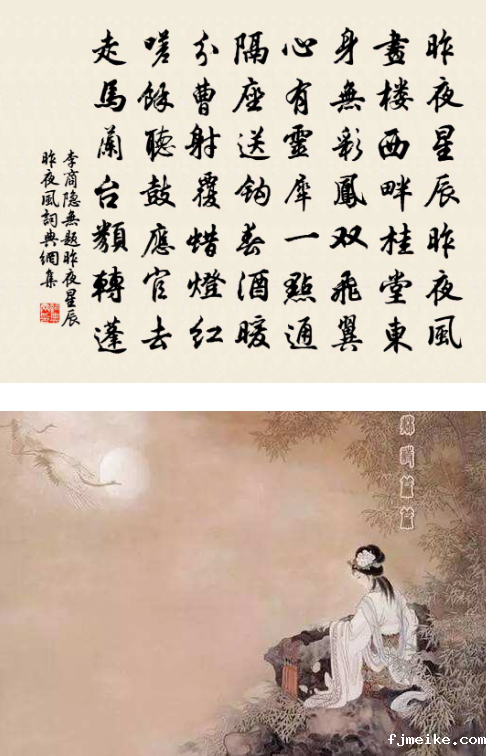 昨夜星辰昨夜風
畫楼西畔桂堂東
身無彩鳳双飛翼
心有靈犀一點通
隔座送鈎春酒暖
分曹射覆蜡燈紅
嗟餘聽鼓應官去
走馬蘭台類轉蓬
李商隐無题昨夜星辰
昨夜風詞典網集
fjmeike.com